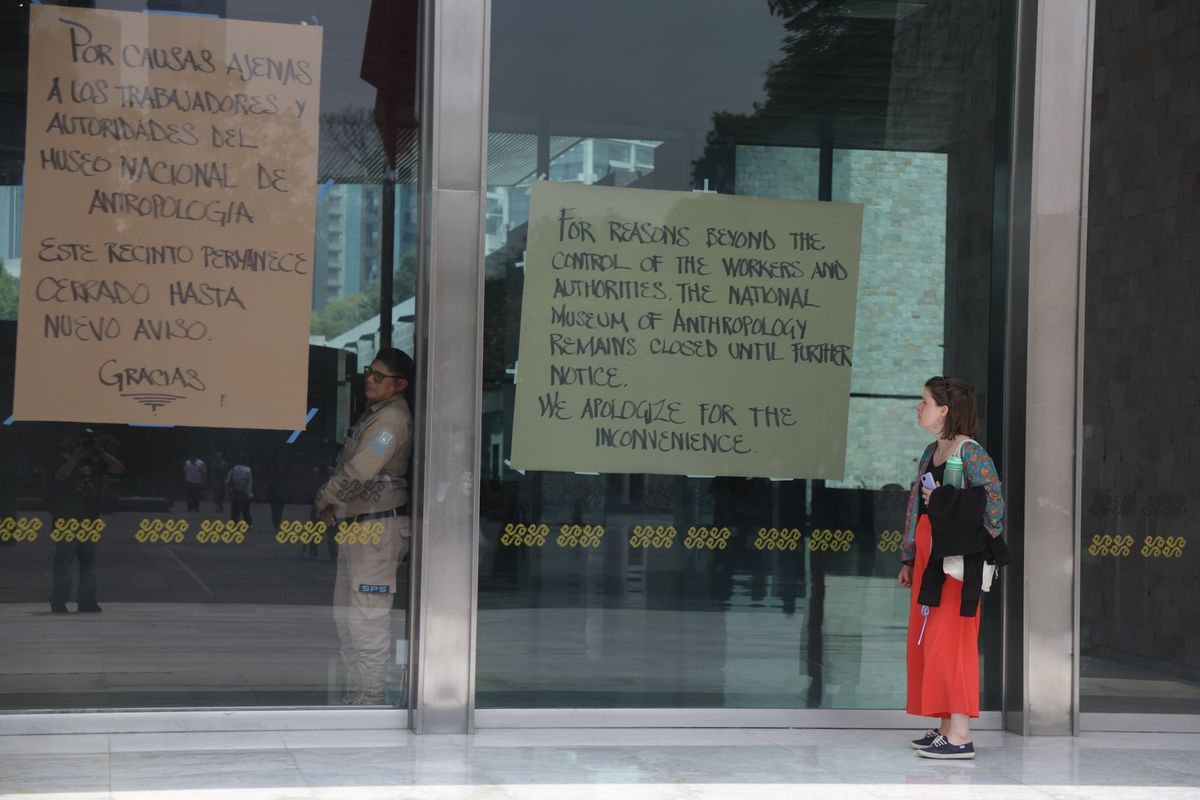 POR CAUSAS AJENAS
A LOS TRABAJADORES Y
AUTORIDADES DEL
MUSEO NACIONAL DE
ANTROPOLOGIA
ESTE RECINTO PERMANECE
CERRADO HASTA
NUEVO AVISO.
GRACIAS
FOR REASONS BEYOND THE
CONTROL OF THE WORKERS AND
AUTHORITIES, THE NATIONAL
MUSEUM OF ANTHROPOLOGY
REMAINS CLOSED UNTIL FURTHER
NOTICE.
WE APOLOGIZE FOR THE
INCONVENIENCE.
SPS